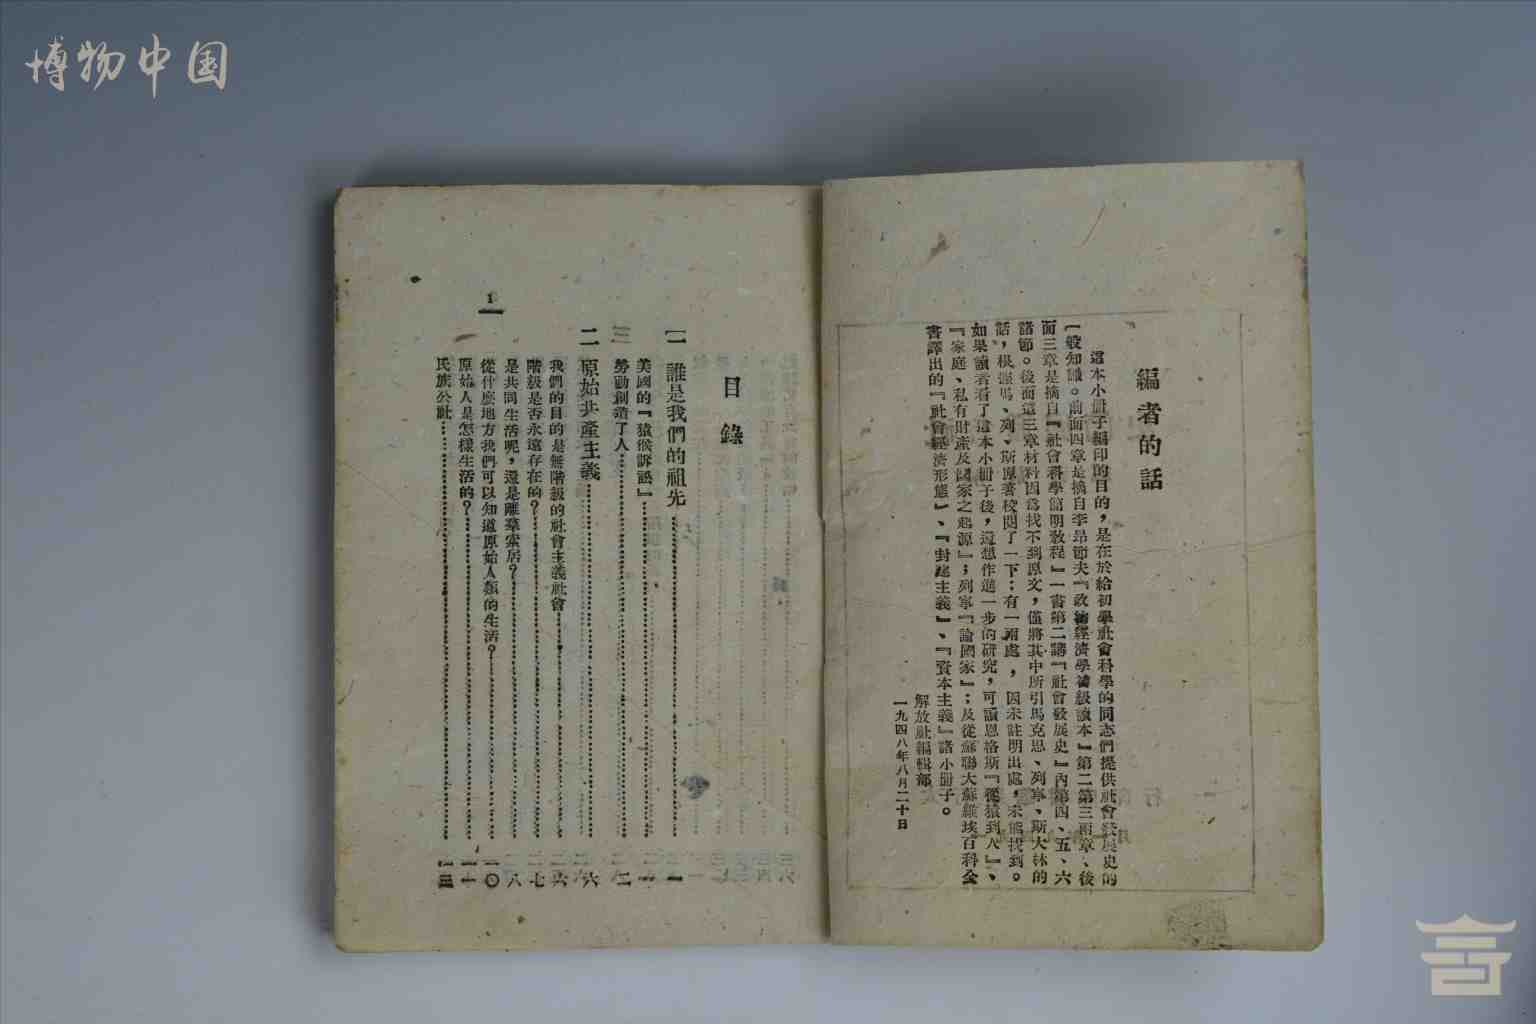 博物中国
編者的話
這本小册子編印的目的，是在於給初學社會科學的同志們提供社會發展史的
一般知識。前面四章是摘自李昂節夫『政治經濟學初級讀本』第二第三兩章、後
面三章是摘自『社會科學簡明教程』一書第二講『社會發展史』內第四、五、六
諸節。後面這三章材料因爲找不到原文，僅將其中所引馬克思、列寧、斯大林的
話，根據馬、列、斯原著校閱了一下；有一兩處，因未註明出處，未能找到。
如果讀者看了這本小册子後，還想作進一步的研究，可讀恩格斯『從猿到人』、
『家庭、私有財產及國家之起源』；列寧『論國家』；及從蘇聯大蘇維埃百科全
書譯出的『社會經濟形態』、『封建主義』、『資本主義』諸小册子。
解放社編輯部
一九四八年八月二十日
目錄
一 誰是我們的祖先……一
美國的『猿猴訴訟』……一
勞動創造了人……二
二 原始共產主義……六
我們的目的是無階級的社會主義社會……六
階級是否永遠存在的？……七
是共同生活呢，還是離羣索居？……八
從什麼地方我們可以知道原始人類的生活？……一〇
原始人是怎樣生活的？……一一
民族公社……一三
1